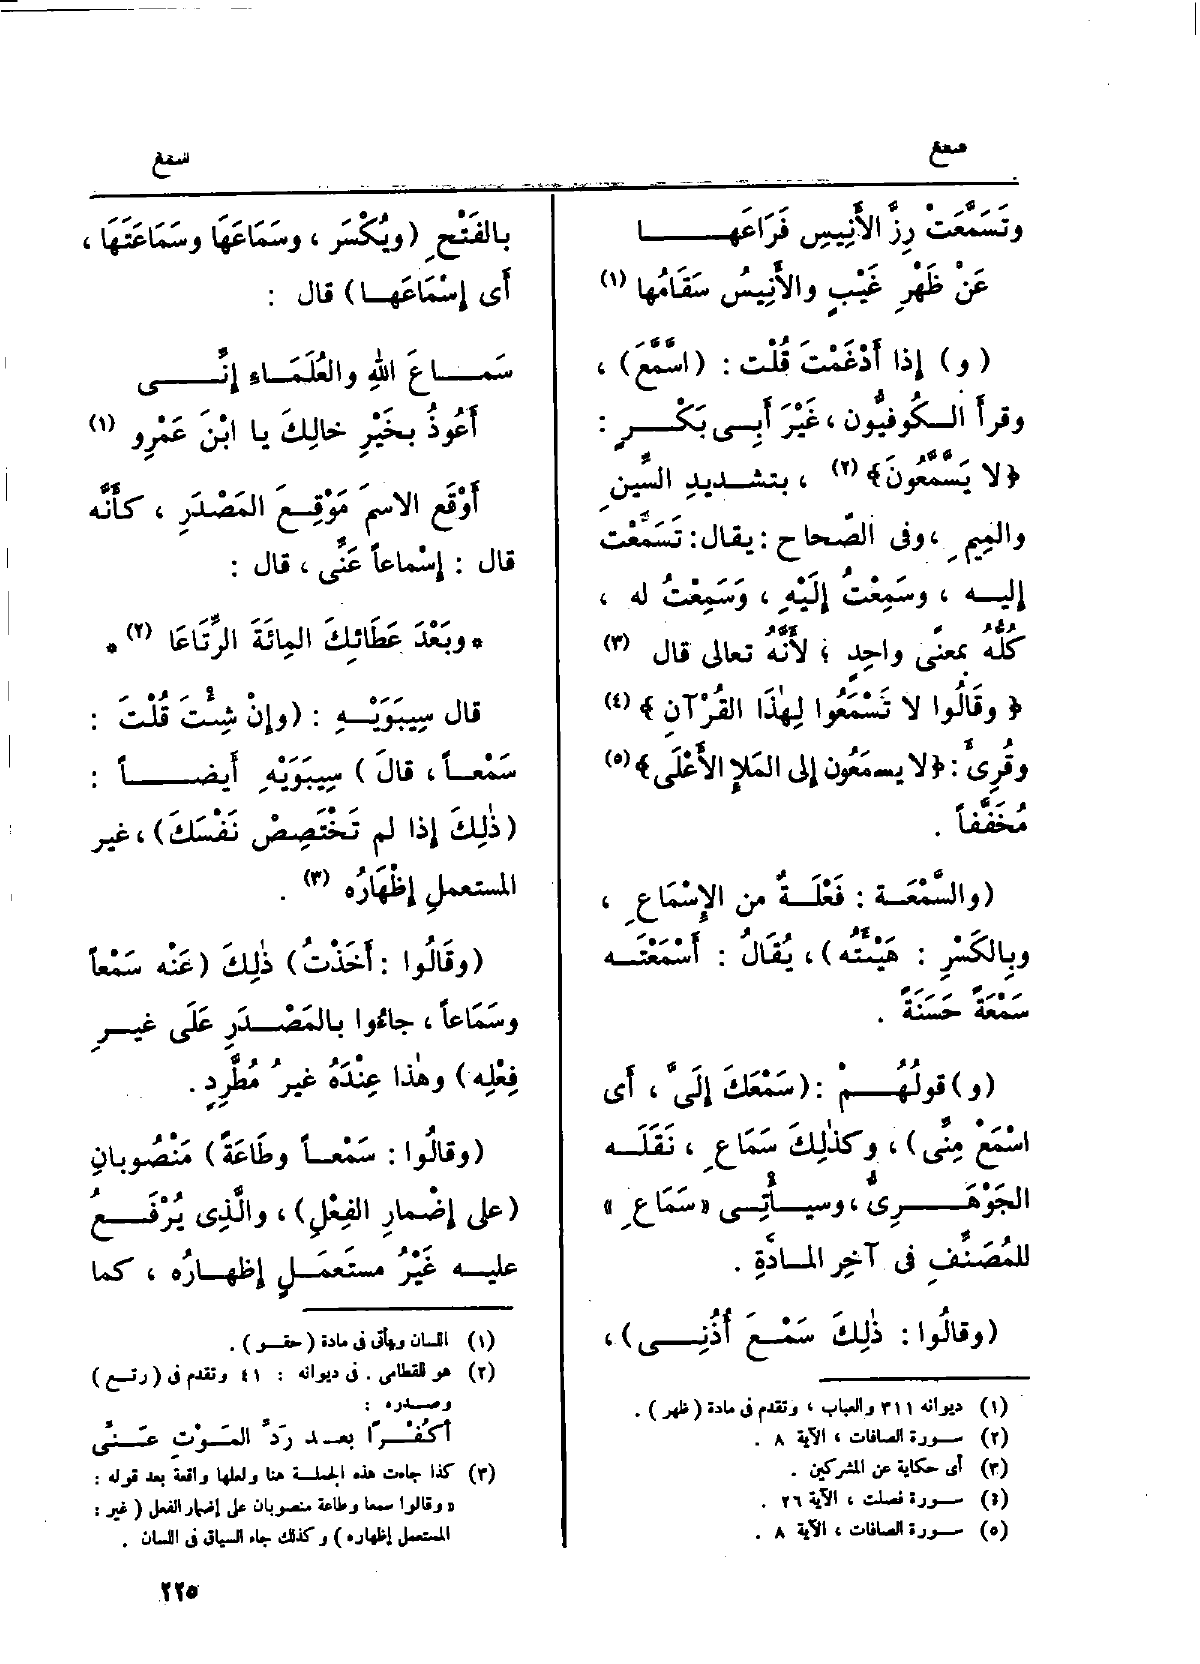 سمع
سمع
وتَسَمَّعَتْ رِزَّ الأَنِيسِ فَرَاعَهــــا
عَنْ ظَهْرِ غَيْبٍ والأَنِيسُ سَقَامُها (١)
(و) إذا أَدْغَمْتَ قُلْت : (اسَّمَّعَ) ،
وقرأَ الــكُوفيُّون ، غَيْرَ أَبِــى بَكْــرٍ :
﴿لا يَسَّمَّعُونَ﴾ (٢) ، بتشــديدِ السِّينِ
والمِيمِ ، وفى الصّحاح : يقال : تَسَمَّعْت
إليــه ، وسَمِعْتُ إِلَيْهِ ، وَسَمِعْتُ له ،
كُلُّهُ بمعنًى واحِدٍ ؛ لأَنَّهُ تعالى قال (٣)
﴿ وقَالُوا لا تَسْمَعُوا لِهٰذَا القُرْآنِ ﴾ (٤)
وقُرِئَ : ﴿لا يسمَعُون إلى المَلإِ الأَعْلَى﴾ (٥)
مُخَفَّفاً .
(والسَّمْعَــة : فَعْلَــةٌ من الإِسْمَاعِ ،
وبِالكَسْرِ : هَيْئَتُه) ، يُقَالُ : أَسْمَعْتَــه
سَمْعَةً حَسَنَةً .
(و) قولُهُــمْ : (سَمْعَكَ إِلَىَّ ، أَى
اسْمَعْ مِنِّى) ، وكذٰلِكَ سَمَاعِ ، نَقَلَــه
الجَوْهَــرِىُّ ، وسيــأْتِــى «سَمَاعِ»
للمُصَنِّفِ فى آخِرِ المــادَّةِ .
(وقالُوا : ذٰلِكَ سَمْــعَ أُذُنِــى) ،
(١) ديوانه ٣١١ والعباب ، وتقدم فى مادة (ظهر) .
(٢) ســورة الصافات ، الآية ٨ .
(٣) أى حكاية عن المشركين .
(٤) ســورة فصلت ، الآية ٢٦ .
(٥) ســورة الصافات ، الآية ٨ .
بالفَتْحِ (ويُكْسَر ، وسَمَاعَهَا وسَمَاعَتَهَا ،
أَى إِسْمَاعَهــا) قال :
سَمــاعَ اللهِ والعُلَمَــاءِ إِنِّــــى
أَعُوذُ بخَيْرِ خالِكَ يا ابْنَ عَمْرِو (١)
أَوْقَع الاسمَ مَوْقِــعَ المَصْدَرِ ، كأَنَّه
قال : إِسْماعاً عَنِّى ، قال :
* وبَعْدَ عَطَائِكَ المِائَةَ الرِّتَاعَا (٢) *
قال سِيبَوَيْــهِ : (وإِنْ شِئْتَ قُلْتَ :
سَمْعــاً ، قالَ) سِيبَوَيْهِ أَيضــــاً :
(ذٰلِكَ إِذا لم تَخْتَصِصْ نَفْسَكَ) ، غير
المستعملِ إِظْهَارُه (٣) .
(وقَالُوا : أَخَذْتُ) ذٰلِكَ (عَنْه سَمْعاً
وسَمَاعاً ، جاءُوا بالمَصْــدَرِ عَلَى غيــرِ
فِعْلِه) وهٰذا عِنْدَهُ غيرُ مُطَّرِدٍ .
(وقالُوا : سَمْعــاً وطَاعَةً) مَنْصُوبانِ
(على إِضْمارِ الفِعْلِ) ، والَّذِى يُرْفَــعُ
عليــه غَيْرُ مستَعمَــلٍ إِظهــارُه ، كما
(١) اللسان ويأتى فى مادة (حقــو) .
(٢) هو للقطامى . فى ديوانه : ٤١ وتقدم فى (رتــع)
وصــدره :
أكُفْــرًا بعــد رَدِّ المَــوْتِ عَنِّــى
(٣) كذا جاءت هذه الجملــة هنا ولعلها واقعة بعد قوله :
« وقالوا سمعا وطاعة منصوبان على إضمار الفعل (غير :
المستعمل إظهاره) وكذلك جاء السياق فى اللسان .
٢٢٥